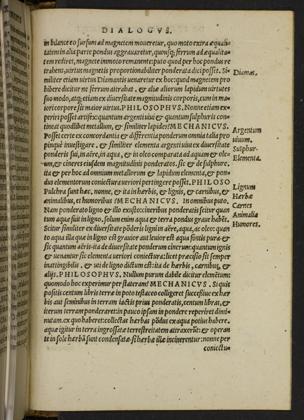 DIALOGVS.
in bilance eo sursum ad magnetem moueretur, quo moto extra æquali
tatem in alia parte pondera aggrauaretur, quousq; ferrum ad æquali
tatem rediret, magnete immoto remanente: puto quod per hoc pondus re
traheretur, uirtus magnetis proportionabiliter ponderata dici posset. Si
militer etiam uirtus Diamantis uenaretur ex hoc: quod magnetem pro
bibere dicitur ne ferrum atrahat. & alia aliorum lapidum uirtutes
suo modo, atq; etiam ex diuersitate magnitudinis corporum, cum in ma
iori corpore sit maior uirtus. PHILOSOPHVS. Nonne etiam ex
periri posset artifex: quantum argenti uiui & quantum sulphuris con
tineat quodlibet metallum, & similiter lapides? MECHANICVS.
Posset certe ex concordantia & differentia ponderum omnia talia pro
pinque inuestigare, & similiter elementa argenti uiui ex diuersitate
ponderis sui, in aëre, in aqua, & in oleo comparata ad aquam & ole
um, & cineres eiusdem magnitudinis ponderatos. sic & de sulphure,
ita & per hoc ad omnium metallorum & lapidum elementa, & pon
dus elementorum coniecturis ueriori pertingere posset. PHILOSO
Pulchra sunt hæc, nonne, & ita in herbis, & lignis, & carnibus, &
animalibus, & humoribus? MECHANICVS. In omnibus puto.
Nam ponderato ligno & illo exusto: cineribus ponderatis scitur quan
tum aquæ fuit in ligno. Solum enim aqua & terra pondus graue habēt.
Scitur similiter ex diuersitate ponderis ligni in aëre, aqua, & oleo: quan
to aqua illa quæ in ligno est grauior aut leuior est aqua fontis pura &
sic quantum aëris. ita de diuersitate ponderum cinerum: quantum ignis
& uenantur sic elementa ueriori coniectura: licet præcisio sit semper
inattingibilis, & uti de ligno dictum est: ita de herbis, carnibus, &
alijs. PHILOSOPHVS. Nullum purum dabile dicitur elemētum:
quomodo hoc experimur per stateram? MECHANICVS. Si quis
positis centum libris terræ in poto testaceo colligeret successiue ex her
bis aut seminibus in terram iactis prius ponderatis, centum libras, &
iterum terram ponderaret: in pauco ipsam in pondere reperiret dimi
nutam. ex quo haberet: collectas herbas pōdus ex aqua potius habere.
aquæ igitur in terra ingrossatæ terrestreitatem attraxerūt: & operatio
ne in sole herbā sunt condensatæ: si herbæ illæ incinerentur: nonne per
coniectu-
Diamas.
Argentum
uiuum,
Sulphur-
Elementa.
Lignum
Herbæ
Carnes
Animalia
Humores.